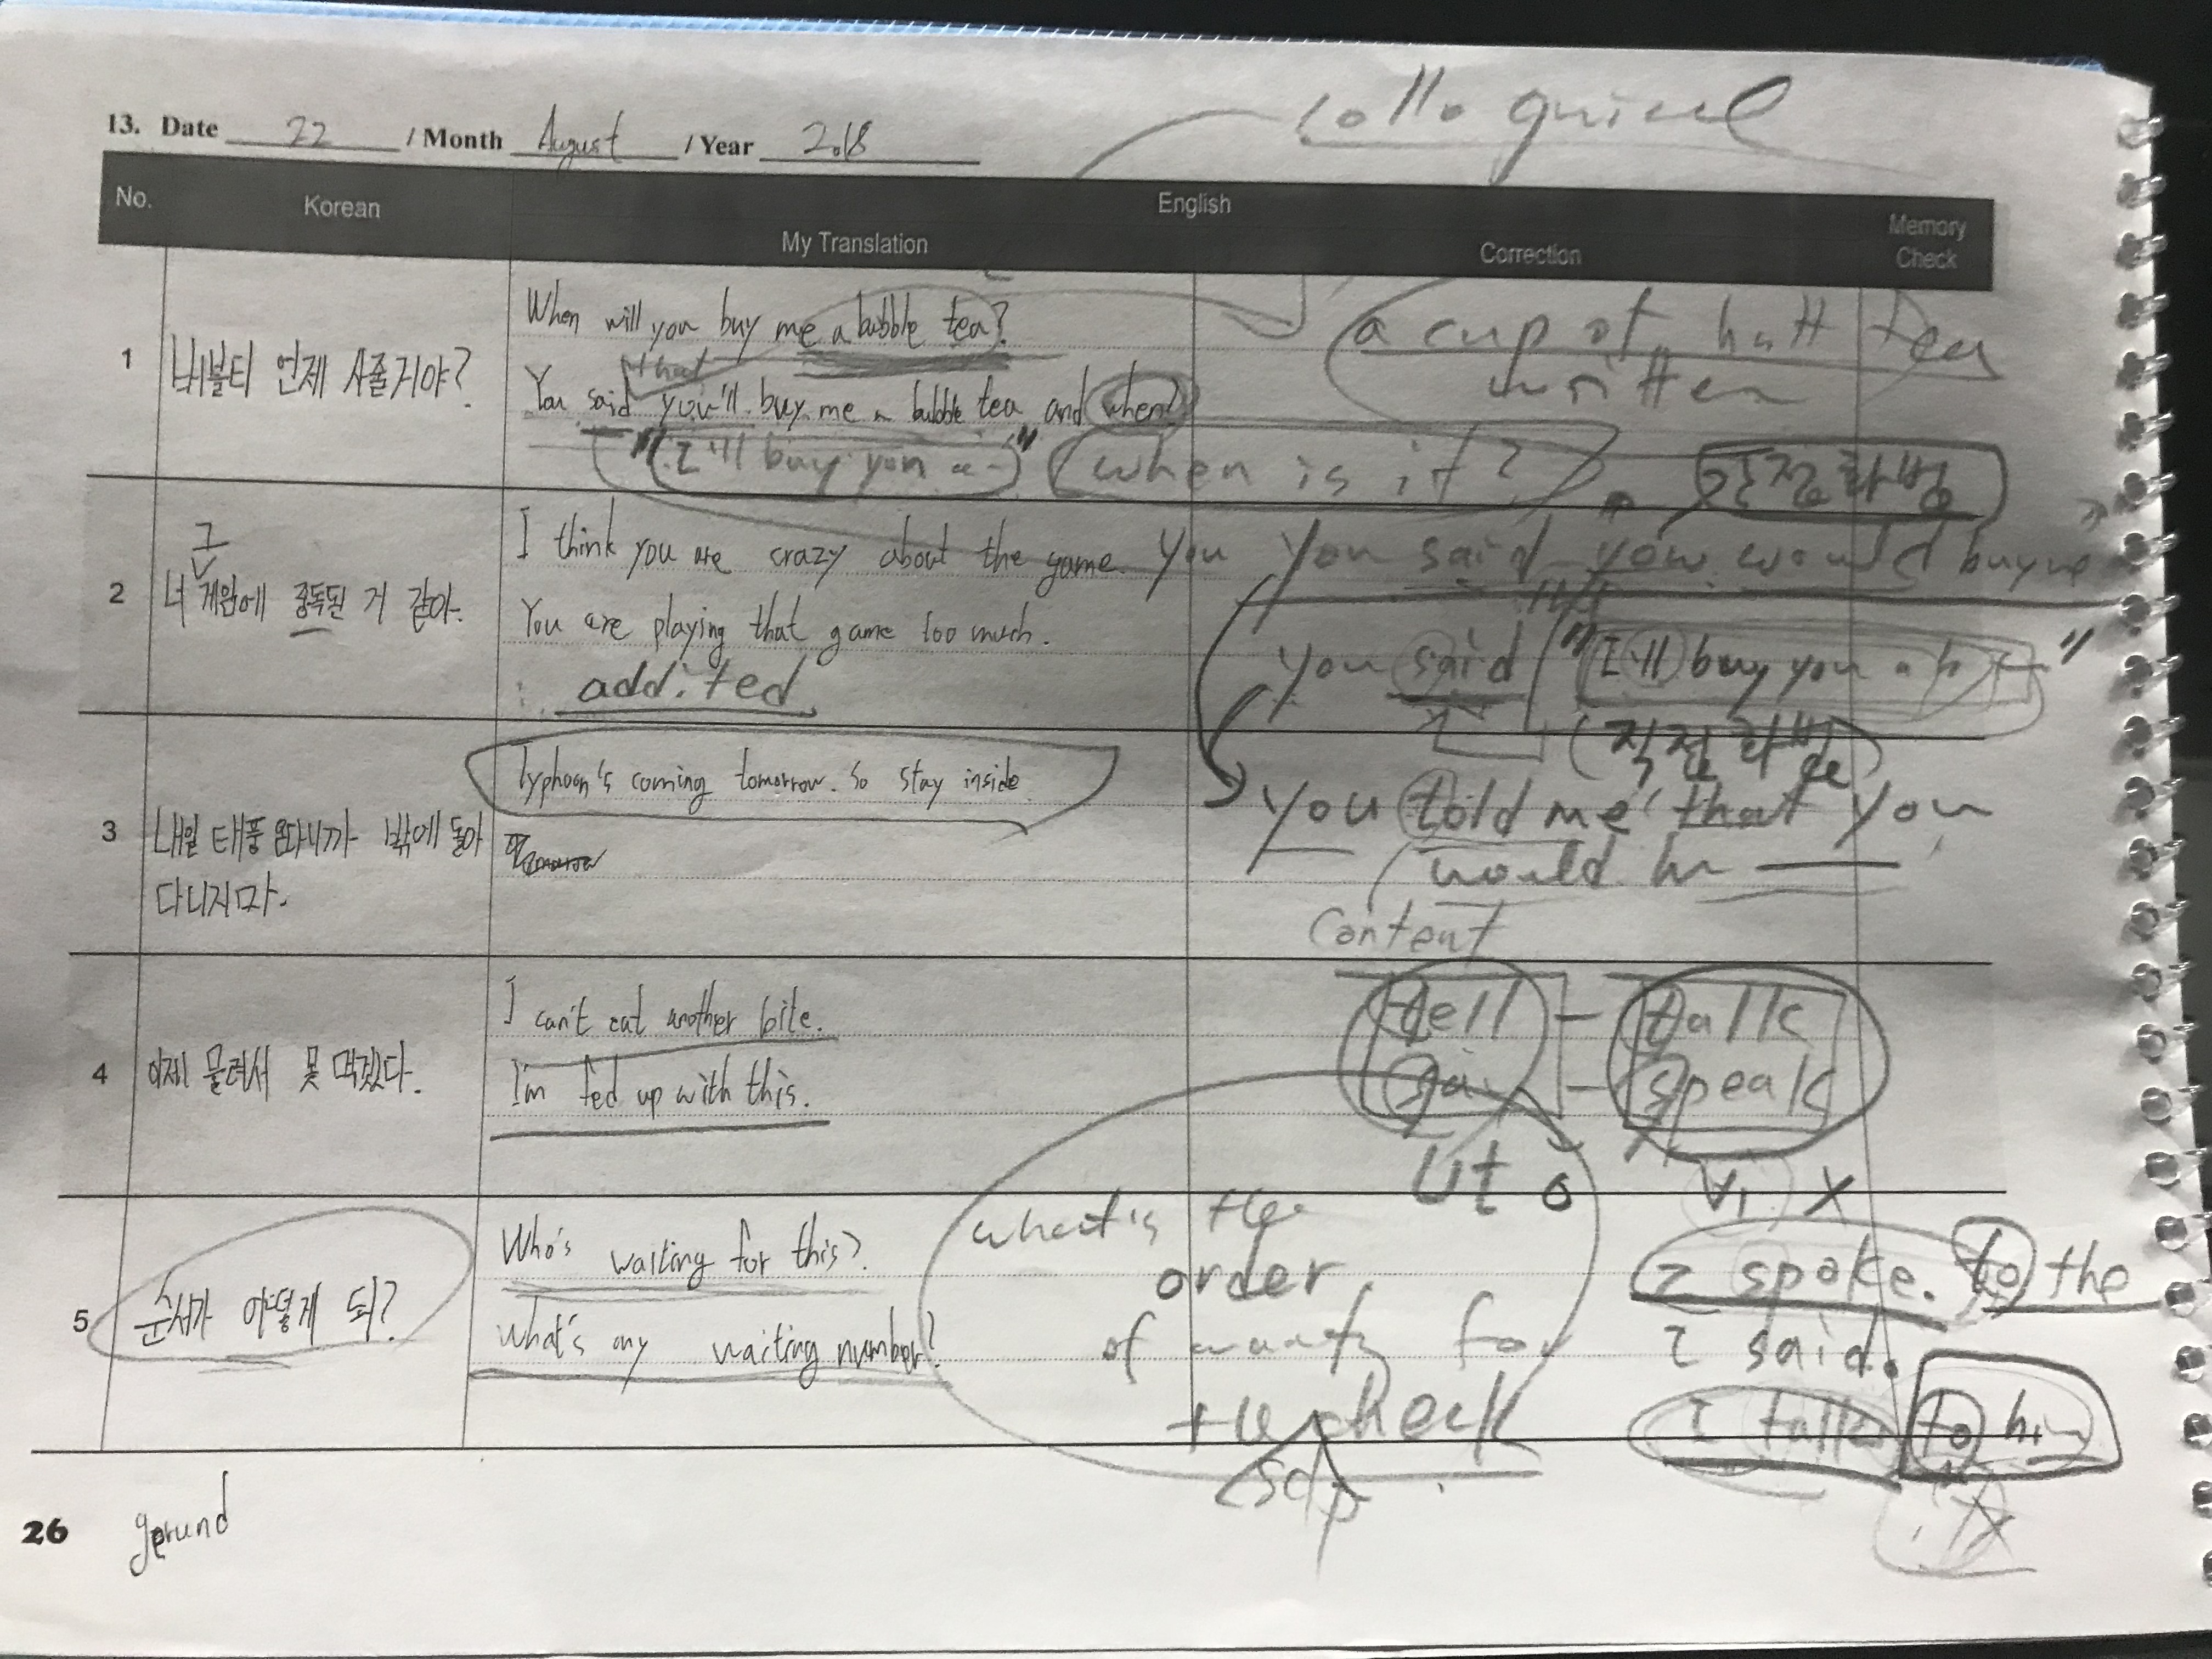 colloquial
13. Date 22 / Month August / Year 2018
No. Korean English
My Translation Correction Memory Check
1
버블티 언제 사줄거야?
When will you buy me a bubble tea?
that
You said you'll buy me a bubble tea and when?
"I'll buy you a-" when is it?
a cup of tea
written
간접화법
2
그
너 게임에 중독된 거 같아.
I think you are crazy about the game. You
You are playing that game too much.
addited
You said you would buy me
you said "I'll buy you a b
(직접화법)
3
내일 태풍 온다니까 밖에 돌아
다니지마.
Typhoon's coming tomorrow. So stay inside.
Tomorrow
you told me that you
would
Content
4
이제 물려서 못 먹겠다.
I can't eat another bite.
I'm fed up with this.
tell - talk
sai - speak
Vt o Vi X
5
순서가 어떻게 돼?
Who's waiting for this?
What's my waiting number?
what's the
order
of for
the check
I spoke. to the
I said.
I talk to him
X
26
gerund